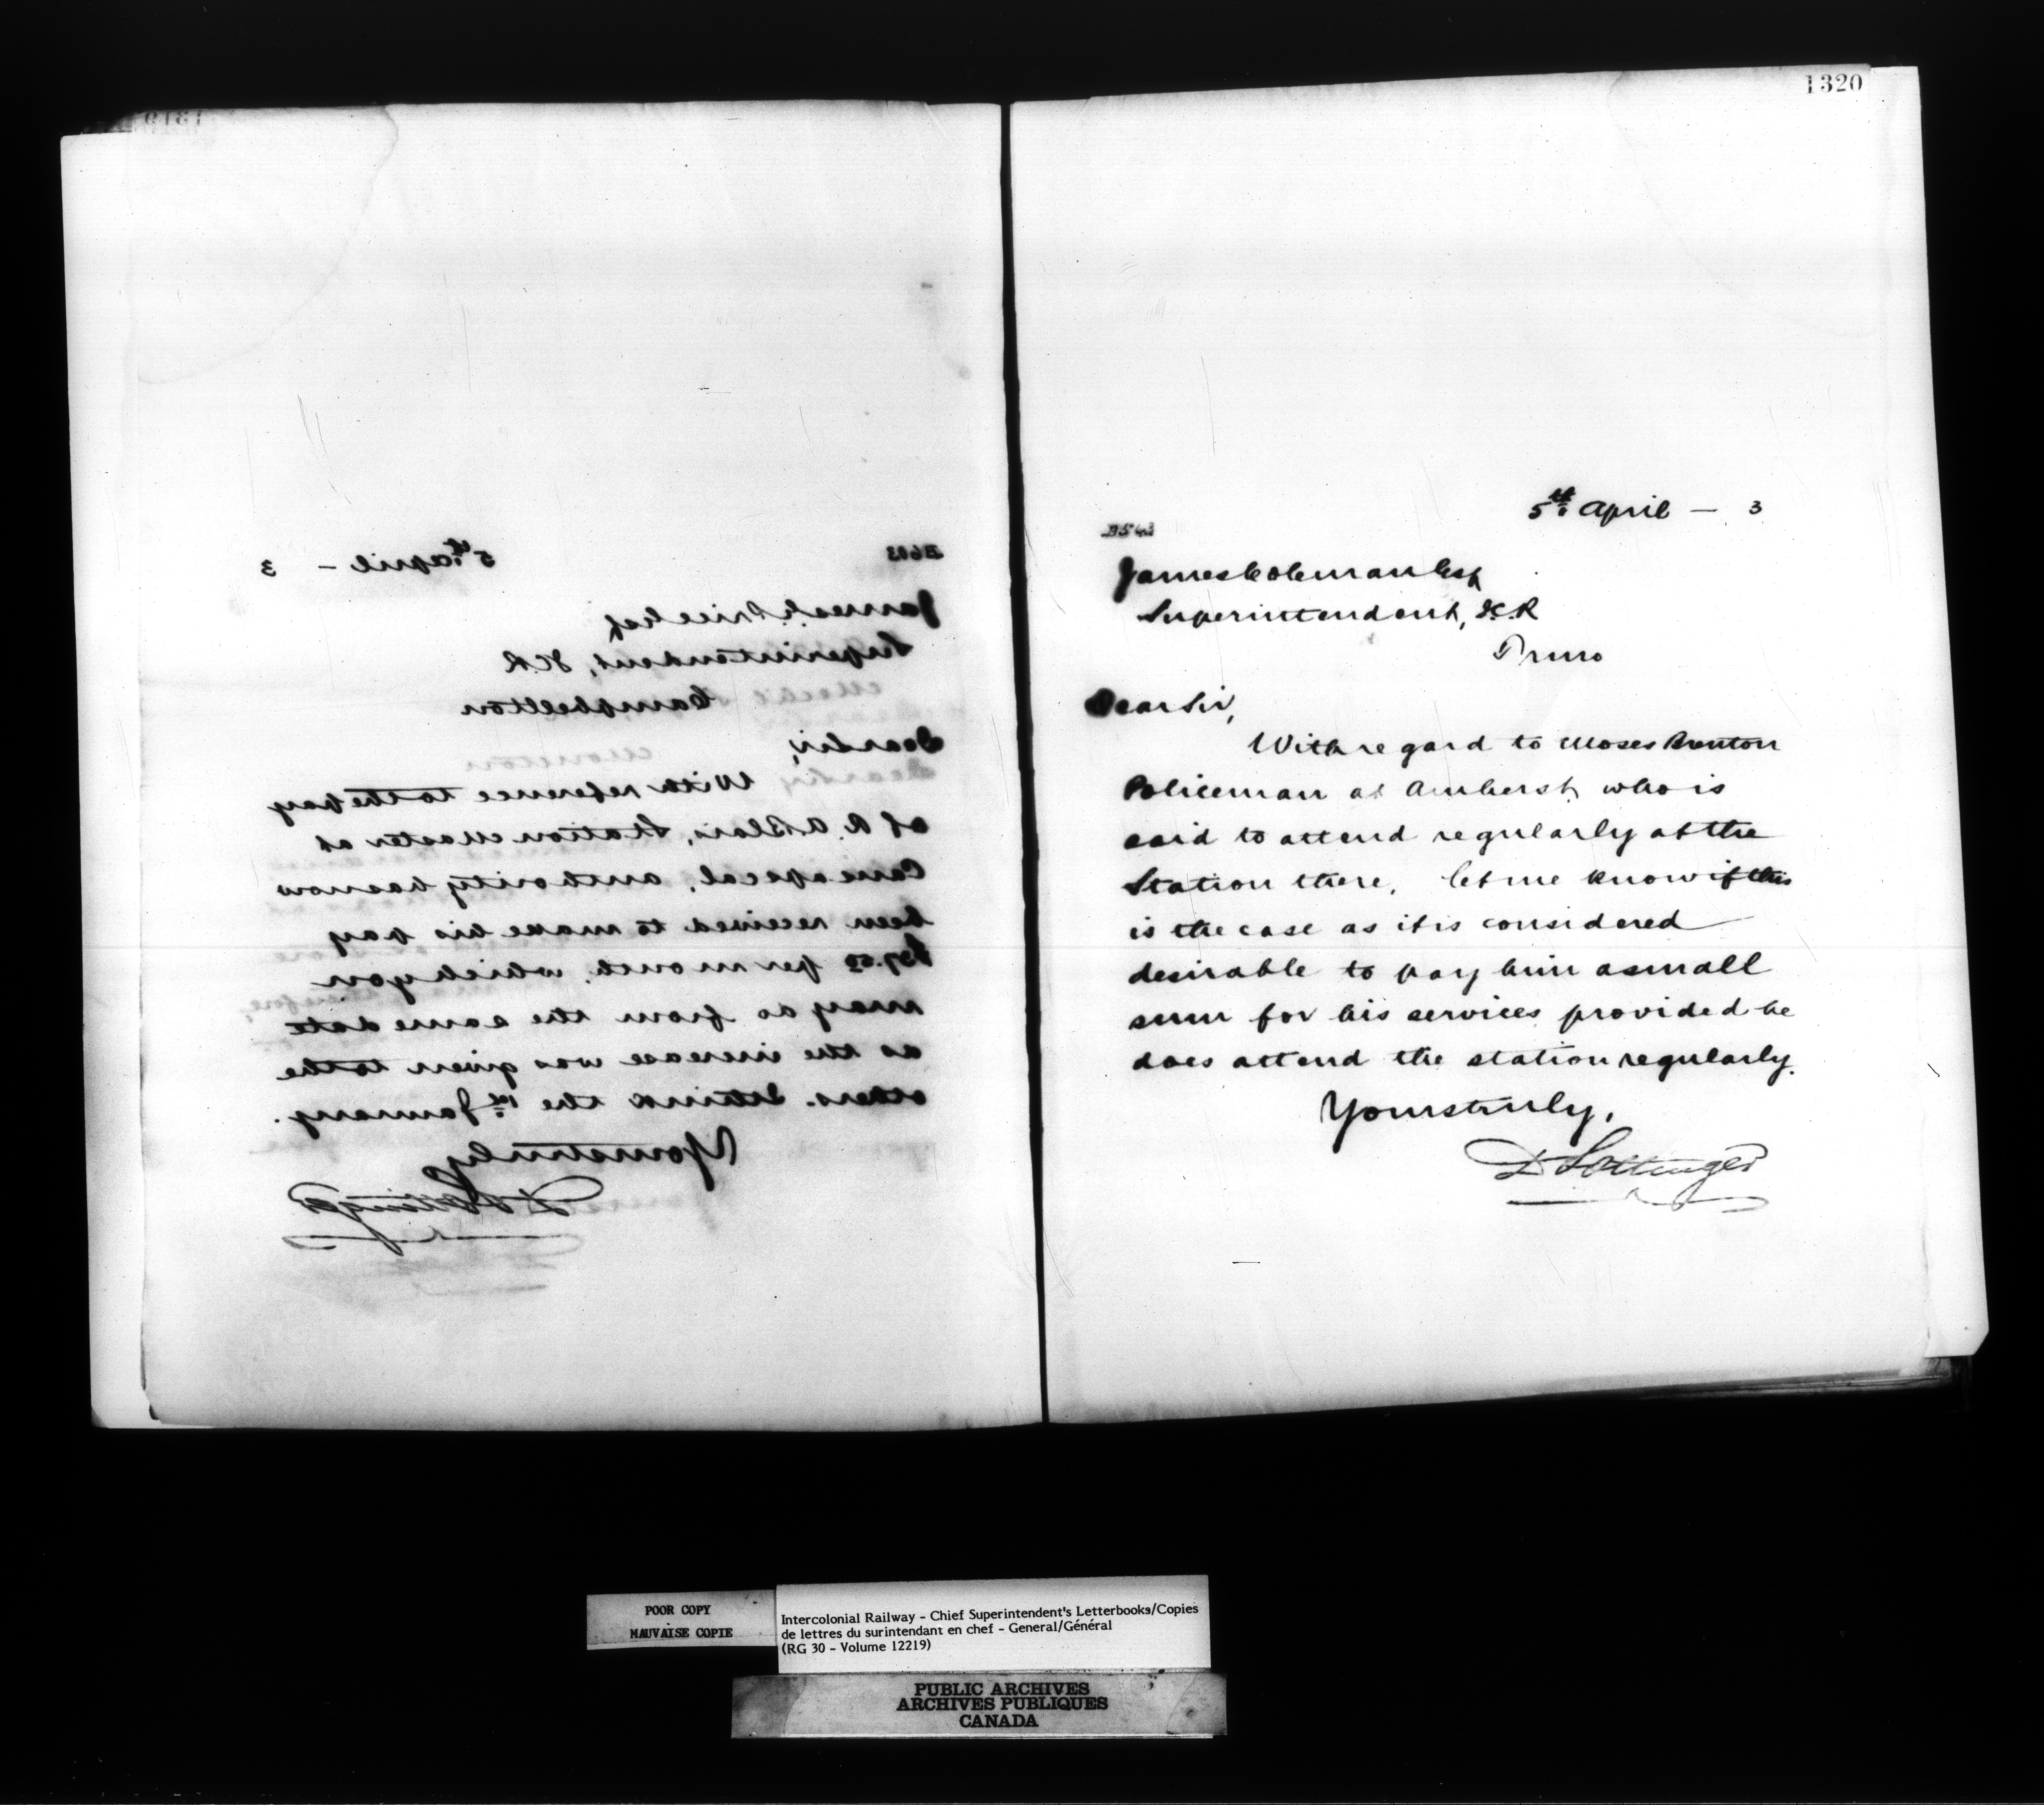 1319
B603
5th April – 3
James Price Esq
Superintendent, I.C.R
Campbellton
Dear Sir,
With reference to the pay
of R. A. Blais, Station Master at
Causapscal, authority has now
been received to make his pay
per month, which you
may do from the same date
as the increase was given to the
others. I think the 1st January.
Yours truly
D Pottinger
1320
5th April – 3
B543
James Coleman Esq
Superintendent, I.C.R
Truro
Dear Sir,
With regard to Moses Brenton
Policeman at Amherst, who is
said to attend regularly at the
Station there, let me know if this
is the case as it is considered
desirable to pay him a small
sum for his services provided he
does attend the station regularly.
Yours truly,
D Pottinger
POOR COPY
MAUVAISE COPIE
Intercolonial Railway - Chief Superintendent's Letterbooks/Copies
de lettres du surintendant en chef - General/Général
(RG 30 - Volume 12219)
PUBLIC ARCHIVES
ARCHIVES PUBLIQUES
CANADA